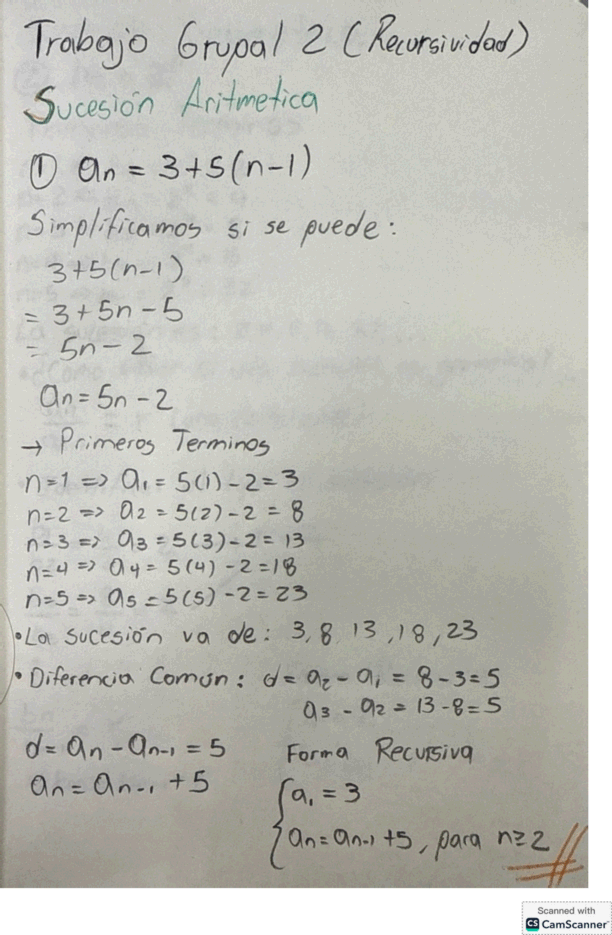 Trabajo Grupal 2 (Recursividad)
Sucesión Aritmetica
① an = 3+5(n-1)
Simplificamos si se puede:
3+5(n-1)
= 3+5n-5
= 5n-2
an=5n-2
→ Primeros Terminos
n=1 => a1 = 5(1)-2=3
n=2 => a2 = 5(2)-2 = 8
n=3 => a3 = 5(3)-2= 13
n=4 => a4 = 5(4)-2=18
n=5 => a5 = 5(5)-2=23
•La sucesión va de: 3, 8 13, 18, 23
• Diferencia Común: d= a2 - a1 = 8-3=5
a3 - a2 = 13-8=5
d= an - an-1 = 5
an= an-1 +5
Forma Recursiva
a1 = 3
an=an-1 +5, para n≥2
Scanned with
CS CamScanner